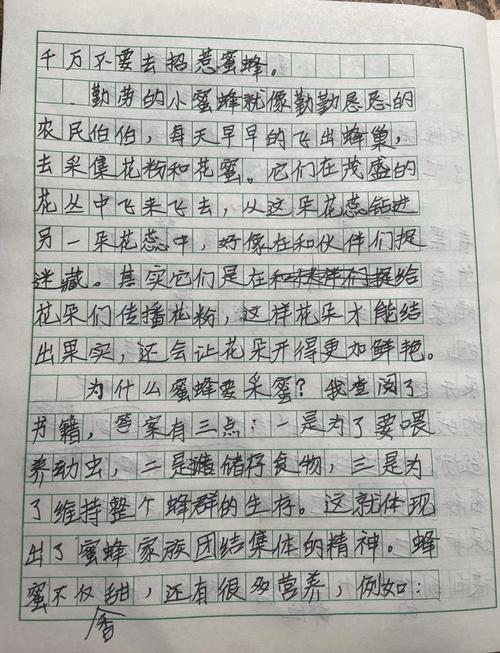 千万不要去招惹蜜蜂。
勤劳的小蜜蜂就像勤勤恳恳的
农民伯伯，每天早早的飞出蜂巢，
去采集花粉和花蜜。它们在茂盛的
花丛中飞来飞去，从这朵花蕊钻进
另一朵花蕊中，好像在和伙伴们捉
迷藏。其实它们是在和伙伴们捉给
花朵们传播花粉，这样花朵才能结
出果实，还会让花朵开得更加鲜艳。
为什么蜜蜂要采蜜？我查阅了
书籍，答案有三点：一是为了要喂
养幼虫，二是储存食物，三是为
了维持整个蜂群的生存。这就体现
出了蜜蜂家族团结集体的精神。蜂
蜜不仅香甜，还有很多营养，例如：